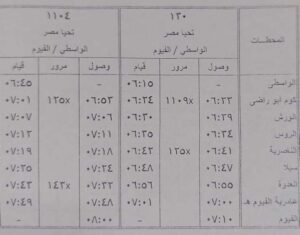 ١٣٠ ١١٠٤
المحطات تحيا مصر تحيا مصر
الواسطى / الفيوم الواسطى / الفيوم
وصول مرور قيام وصول مرور قيام
الواسطى - ٠٦:١٥ - ٠٦:٤٥
كوم ابو راضى ٠٦:٢٣ ١١٠٩x ٠٦:٢٤ ٠٦:٥٣ ١٢٥x ٠٧:٠١
الورش ٠٦:٢٩ ٠٦:٣٠ ٠٧:٠٦ ٠٧:٠٧
الروس ٠٦:٣٤ ٠٦:٣٥ ٠٧:١١ ٠٧:١٢
الناصرية ٠٦:٤١ ١٢٥x ٠٦:٤٢ ٠٧:١٨ ٠٧:١٩
سيلا ٠٦:٤٧ ٠٦:٤٨ ٠٧:٢٤ ٠٧:٢٥
العدوة ٠٦:٥٥ ٠٦:٥٦ ٠٧:٣٢ ١٤٣x ٠٧:٤٣
قادرية الفيوم هـ ٠٧:٠٠ ٠٧:٠١ ٠٧:٤٨ ٠٧:٤٩
الفيوم ٠٧:١٠ ٠٨:٠٠